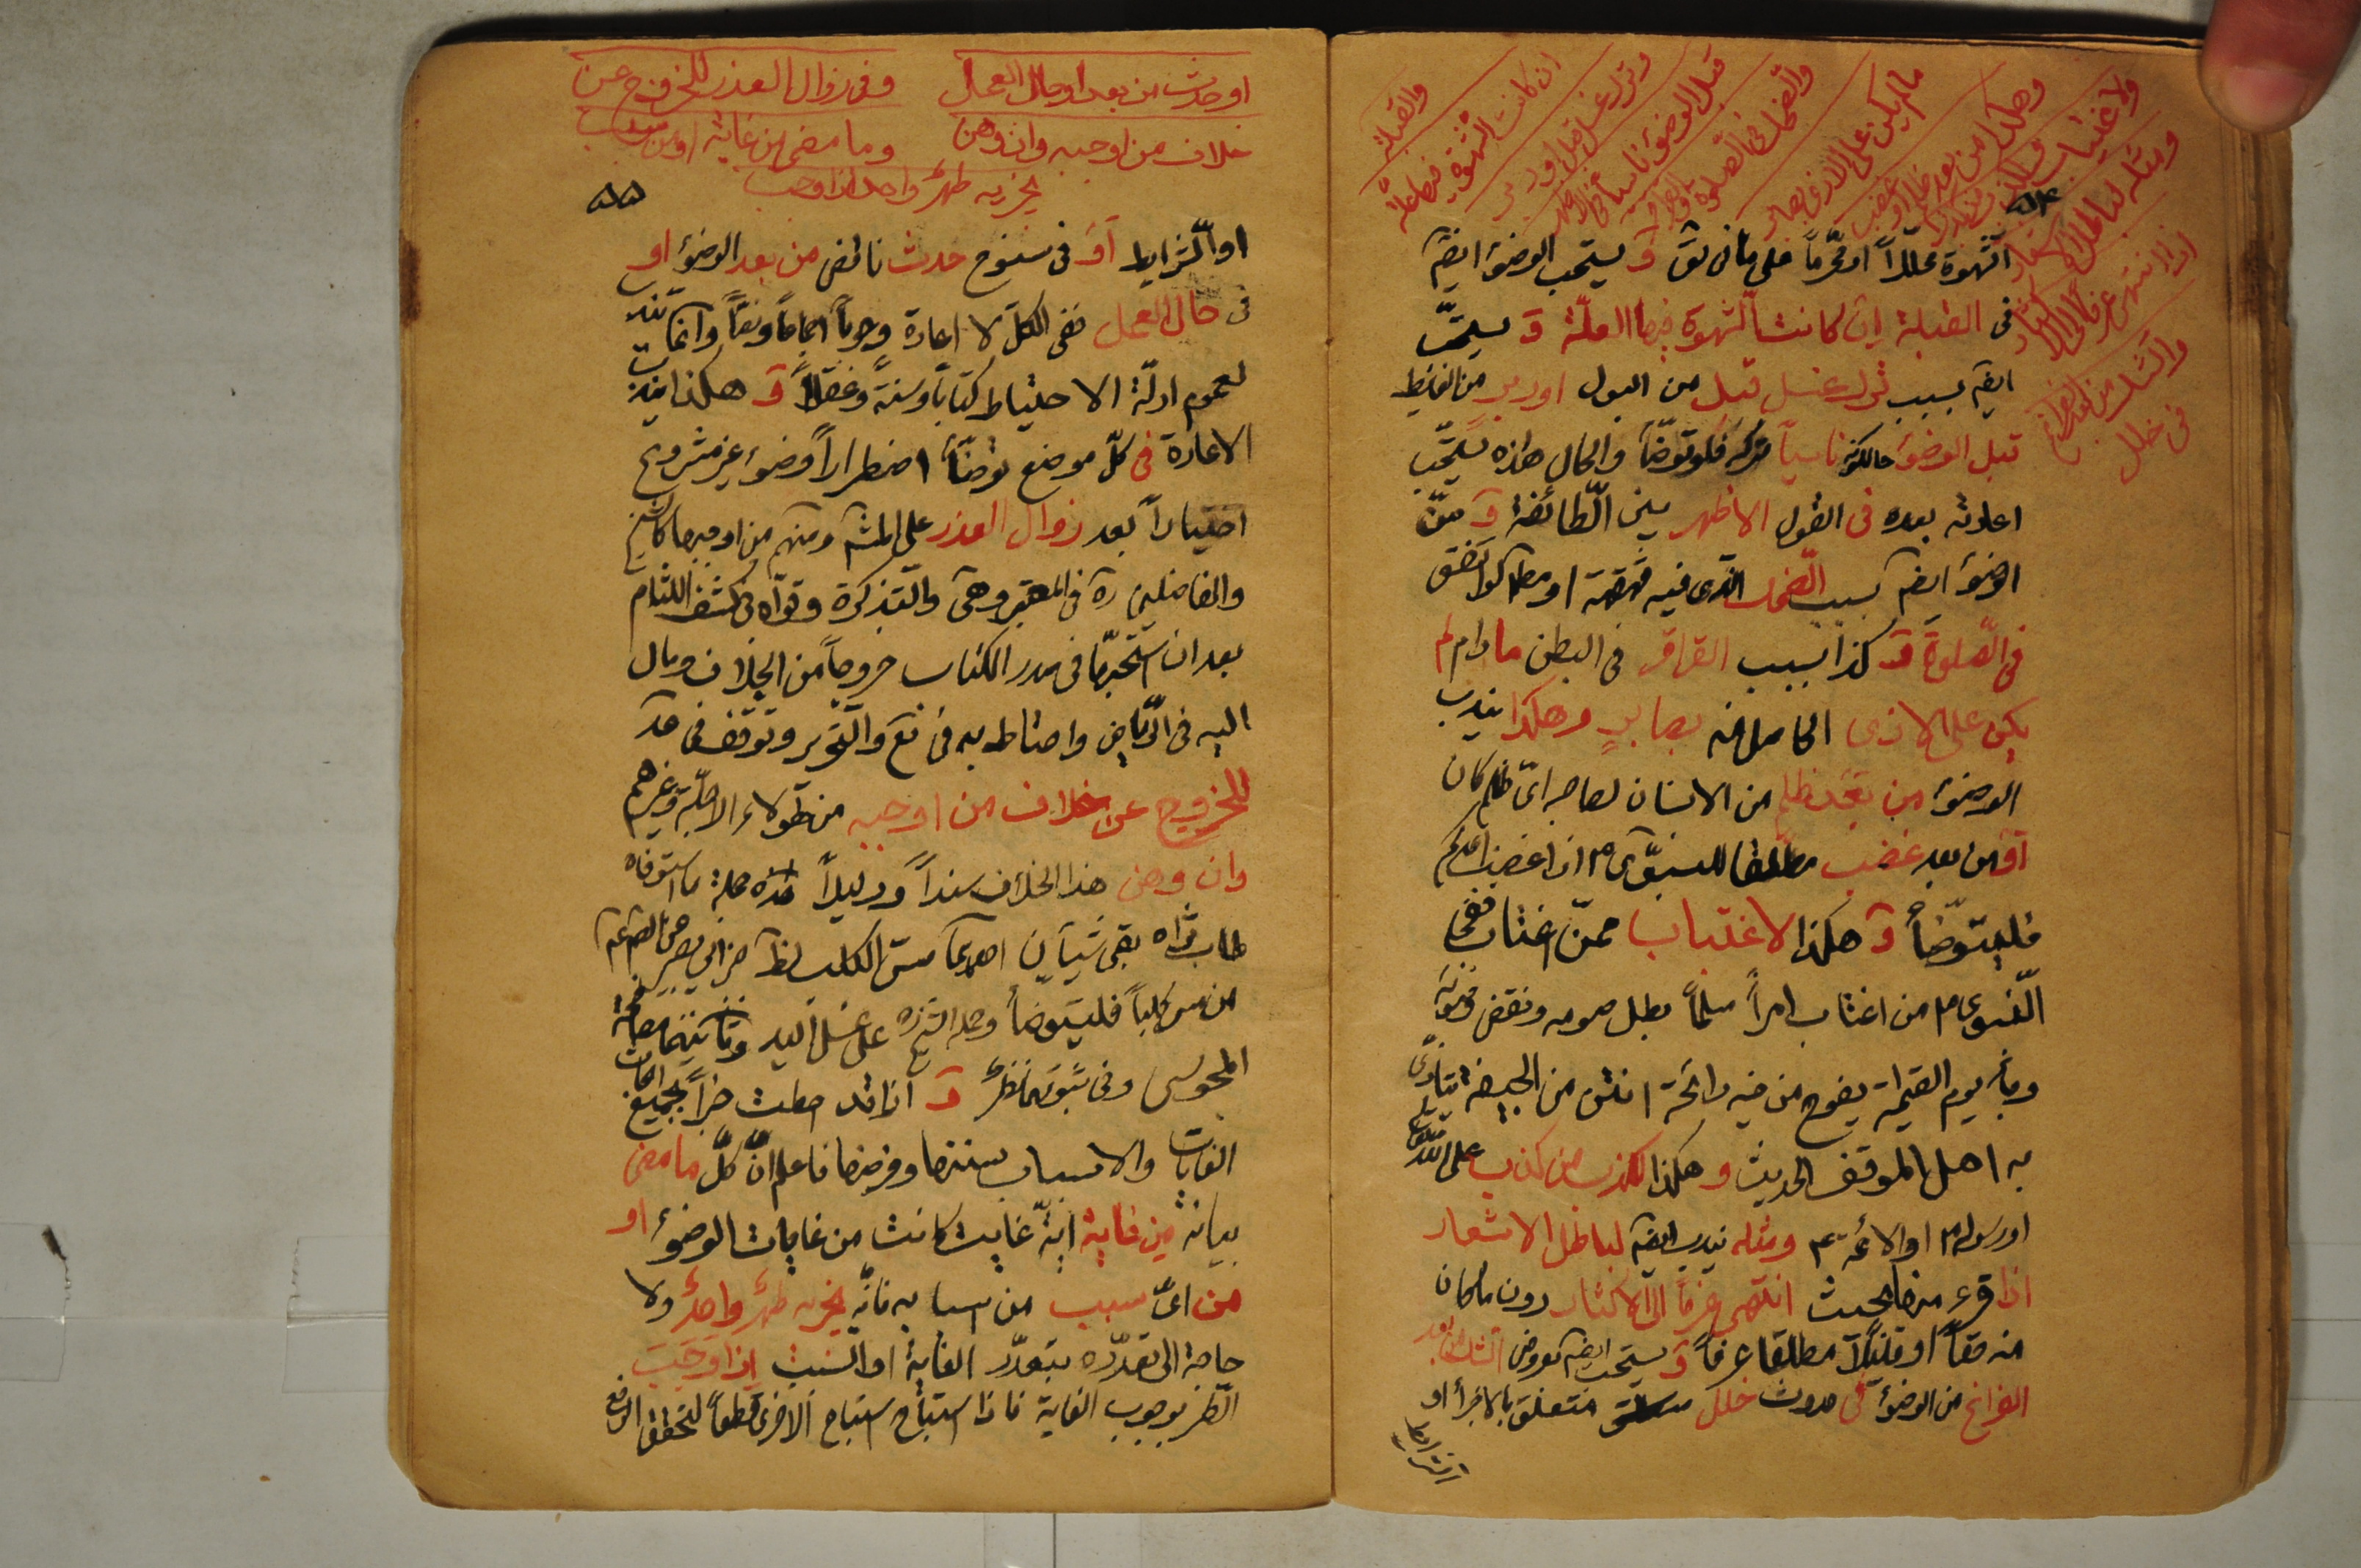 والقبلة
ان كانت الشهوة فيها علة
وترك غسل قبل او دبر
قبل الوضوء ناسيا في الاظهر
والضحك في الصلوة والقراقر
مالم يكن على الاذى بصابر
وهكذا من بعد ظلم او غضب
ولاغتياب
ومثله لباطل الاشعار
اذا انتهى عرفا الى الاكثار
والشك من بعد الفراغ
في خلل
الشهوة محللاً او محرّماً على ما في و يستحب الوضوء ايضً
في القبلة ان كانت الشهوة فيها العلّة و يستحبّ
ايضً بسبب ترك غسل قبل من البول او دبر من الغايط
قبل الوضوء حالكونه ناسياً تركه فلو توضّأ والحال هذه يستحّب
اعادته بعده في القول الاظهر بين الطّائفة و
الوضوء ايضً بسبب الضحك الذى فيه قهقهة او مطلقا كما
في الصّلوة و كذا بسبب القراقر في البطن مادام لم
يكن على الاذى الحاصل منه بصابر وهكذا يندب
الوضوء من بعد ظلم من الانسان لصاحبه اىّ ظلم كان
او من بعد غضب مطلقا للنبوّى ص اذا غضب احدكم
فليتوضّأ و هكذا لاغتياب ممّن اغتاب ففى
النّبوى ص من اغتاب امرأً مسلماً بطل صومه ونقض وضوئه
وجاء يوم القيمة يفوح من فيه رائحة انتن من الجيفة يتاذى
به اهل الموقف الحديث وهكذا لكذب من كذب على الله تعالى
او رسوله ص او الائمة ع ومثله يندب ايضً لباطل الاشعار
اذا قرء منها بحيث انتهى عرفاً الى الاكثار دون ما كان
منه حقاً او قليلاً مطلقا عرفاً و يستحب ايضً لعروض الشك من بعد
الفراغ من الوضوء في حدوث خلل متعلق بالاجزاء او
الشرايط
او حدث من بعد او حال العمل
وفي زوال العذر للخروج عن
خلاف من اوجبه وان وهن
وما مضى من غاية او من سبب
يجزيه طهرٌ واحد اذا وجب
او الشّرايط او في سنوح حدث ناقض من بعد الوضوء او
في حال العمل ففى الكلّ لا اعادة وجوباً اجماعاً ونصّاً وانما تندب
لعموم ادلّة الاحتياط كتاباً وسنةً وعقلاً و هكذا يندب
الاعادة في كلّ موضع توضّأ اضطراراً وضوء غير مشروع
اختياراً بعد زوال العذر على المشهـ ومنهم من اوجبها كالشيخ
والفاضلين ره في المعتبر وهى والتذكرة وقوّاه في كشف اللثام
بعد ان استحبها في صدر الكتاب خروجاً من الخلاف ومال
اليه في الرّياض واحتاط به في والتحرير وتوقف في عد
للخروج عن خلاف من اوجبه من هؤلاء الاجلّة وغيرهم
وان وهن هذا الخلاف سنداً ودليلاً هذه جملة ما استوفاه
طاب ثراه بقى شيآن احدهما مسّ الكلب لظـ خبر ابي بصير عن الصم ع
من مس كلباً فليتوضأ وحمله الشيخ على غسل اليد وثانيهما مصافحة
المجوسى وفي ثبوتهما نظرٌ و اذا قد احطت خبراً بجميع
الغايات والاسباب سننها وفرضها فاعلم انّ كلّ ما مضى
بيانه من غاية ايّة غاية كانت من غايات الوضوء او
من اىّ سبب من اسبابه فانّه يجزيه طهرٌ واحدٌ ولا
حاجة الى تعدّده بتعدّد الغاية او السّبب اذا وجبت
الطهر بوجوب الغاية فاذا استباح استباح الاخرى قطعاً لتحقق الرفع